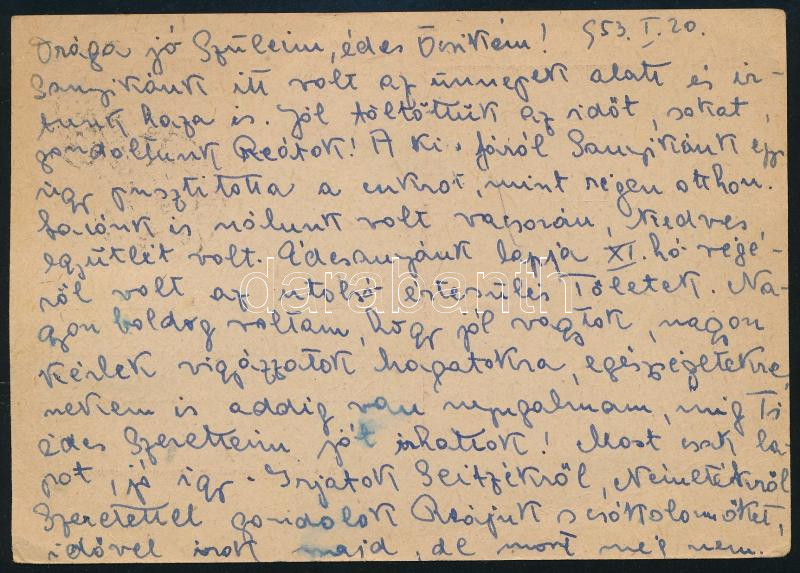 Drága jó Szüleim, édes Öcsikém! 953. I. 20.
Sanyikánk itt volt az ünnepek alatt és ír-
tunk haza is. Jól töltöttük az időt, sokat
gondoltunk Reátok! A ki. fáról Sanyikánk épp
úgy pusztította a cukrot, mint régen otthon.
is nálunk volt vacsorán, kedves
együtlét volt. Édesanyánk lapja XI. hó végé-
ről volt az utolsó értesülés Tőletek. Na-
gyon boldog voltam, hogy jól vagytok, nagyon
kérlek vigyázzatok magatokra, egészségetekre,
nekem is addig van nyugalmam, míg Ti
édes Szeretteim jót írhattok! Most csak la-
pot, jó így. Írjatok Seitzékről, Németékről
Szeretettel gondolok Reájuk s csókolom őket,
idővel írok majd, de most még nem.
darabanth